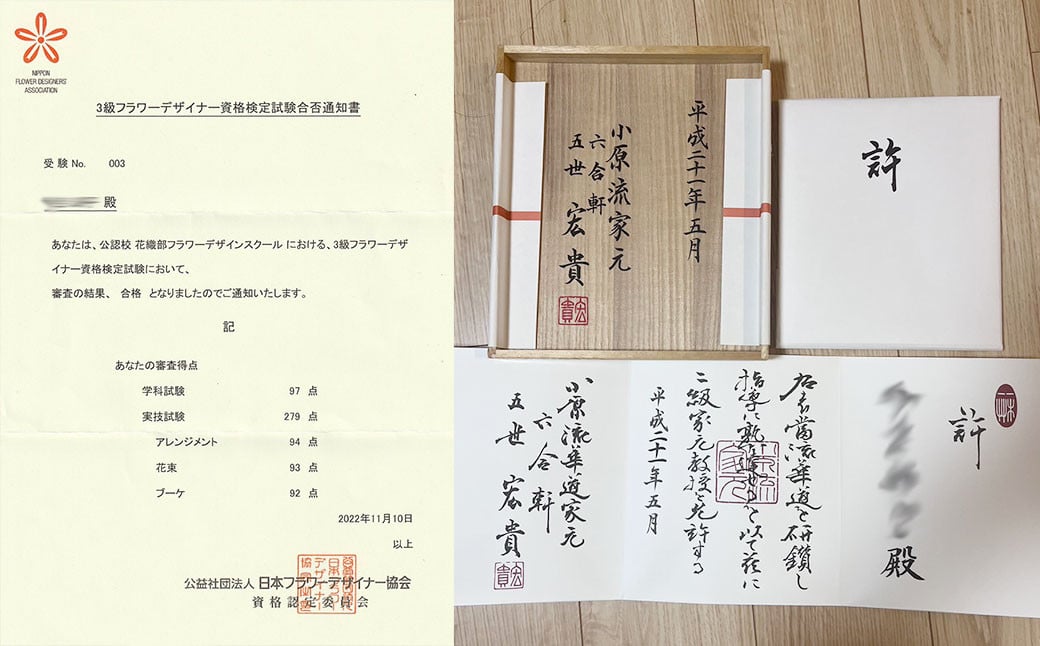 NIPPON
FLOWER DESIGNERS'
ASSOCIATION
3級フラワーデザイナー資格検定試験合否通知書
受験 No. 003
殿
あなたは、公認校 花織部フラワーデザインスクール における、3級フラワーデザ
イナー資格検定試験において、
審査の結果、 合格 となりましたのでご通知いたします。
記
あなたの審査得点
学科試験 97 点
実技試験 279 点
アレンジメント 94 点
花束 93 点
ブーケ 92 点
2022年11月10日
以上
公益社団法人 日本フラワーデザイナー協会
資格認定委員会
平成二十一年五月
小原流家元
六合軒
五世 宏貴
許
許
殿
右者當流華道を研鑽し
指導に熟達せるを以て茲に
二級家元教授を免許する
平成二十一年五月
小原流華道家元
六合軒
五世 宏貴